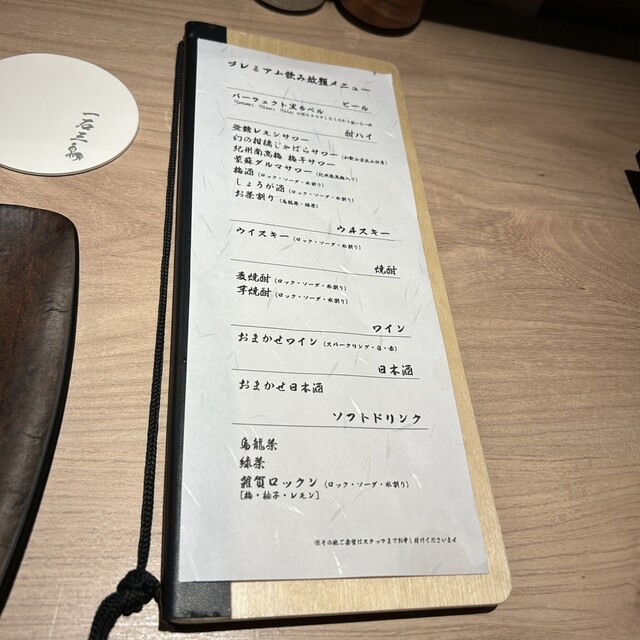 プレミアム飲み放題メニュー
ビール
パーフェクト黒ラベル
酎ハイ
発酵レモンサワー
幻の柑橘じゃばらサワー (和歌山県北山村産)
紀州南高梅 梅干サワー
紫蘇ダルマサワー (紀州南高梅入り)
梅酒 (ロック・ソーダ・水割り)
しょうが酒 (ロック・ソーダ・水割り)
お茶割り (烏龍茶・緑茶)
ウヰスキー
ウイスキー (ロック・ソーダ・水割り)
焼酎
麦焼酎 (ロック・ソーダ・水割り)
芋焼酎 (ロック・ソーダ・水割り)
ワイン
おまかせワイン (スパークリング・白・赤)
日本酒
おまかせ日本酒
ソフトドリンク
烏龍茶
緑茶
雑賀ロックン (ロック・ソーダ・水割り)
[梅・柚子・レモン]
※その他ご要望はスタッフまでお申し付けくださいませ